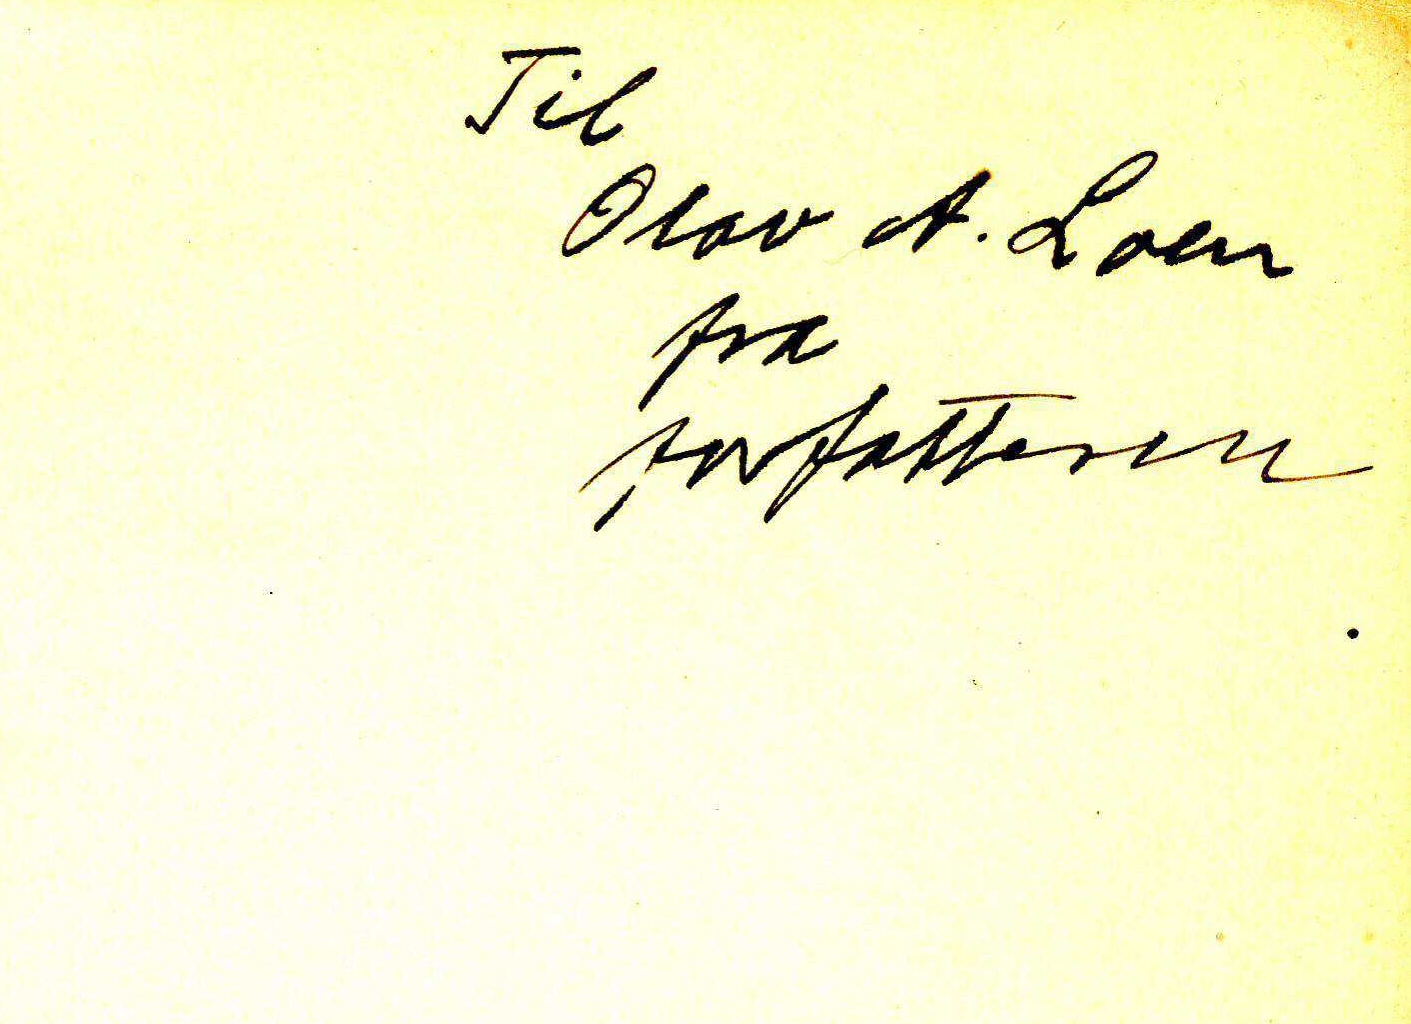 Til
Olav A. Loen
fra
forfatteren